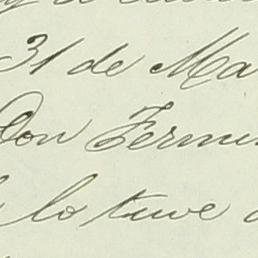 31 de Ma
Don Fermin
lo tuve